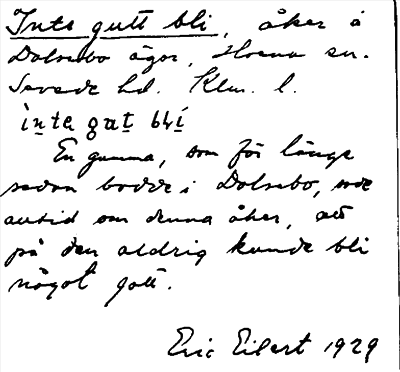 Inte gutt bli, åker å
Dalsebo ägor, Horna sn.
Sevede hd. Klm. l.
inte gat bli
En gumma, som för länge
sedan bodde i Dalsebo, sade
alltid om denna åker, att
på den aldrig kunde bli
något gott.
Eric Eilert 1929